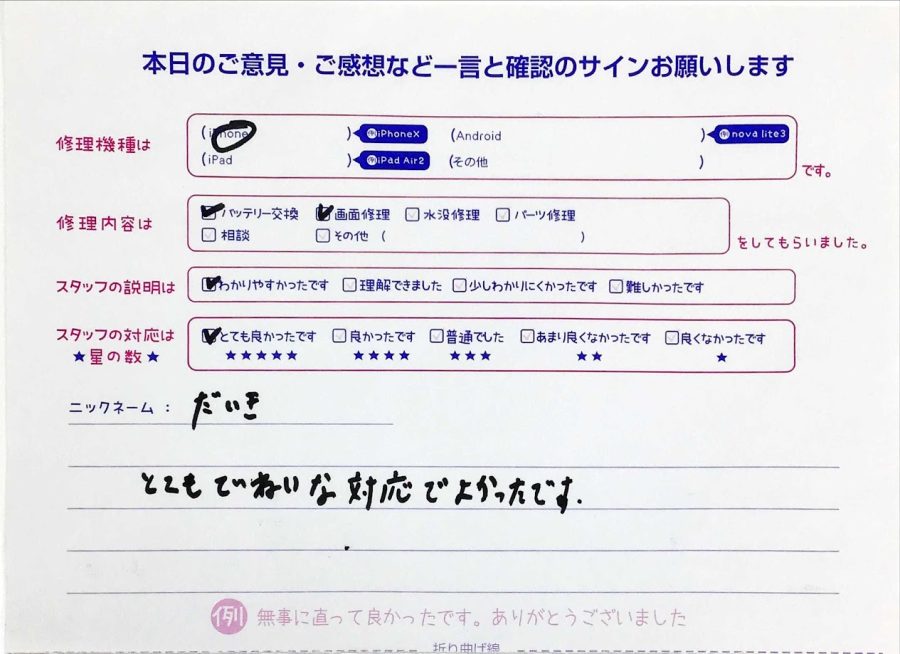 本日のご意見・ご感想など一言と確認のサインお願いします
修理機種は (iPhone )例iPhoneX (Android )例nova lite3
(iPad )例iPad Air2 (その他 ) です。
修理内容は バッテリー交換 画面修理 水没修理 パーツ修理
相談 その他 ( ) をしてもらいました。
スタッフの説明は わかりやすかったです 理解できました 少しわかりにくかったです 難しかったです
スタッフの対応は とても良かったです 良かったです 普通でした あまり良くなかったです 良くなかったです
★星の数★ ★★★★★ ★★★★ ★★★ ★★ ★
ニックネーム： だいき
とてもていねいな対応でよかったです.
例 無事に直って良かったです。ありがとうございました
折り曲げ線